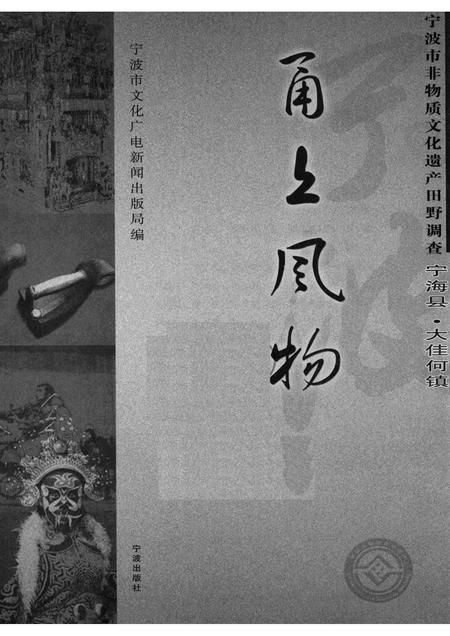 宁波市非物质文化遗产田野调查
宁海县·大佳何镇
甬上风物
宁波市文化广电新闻出版局编
宁波出版社